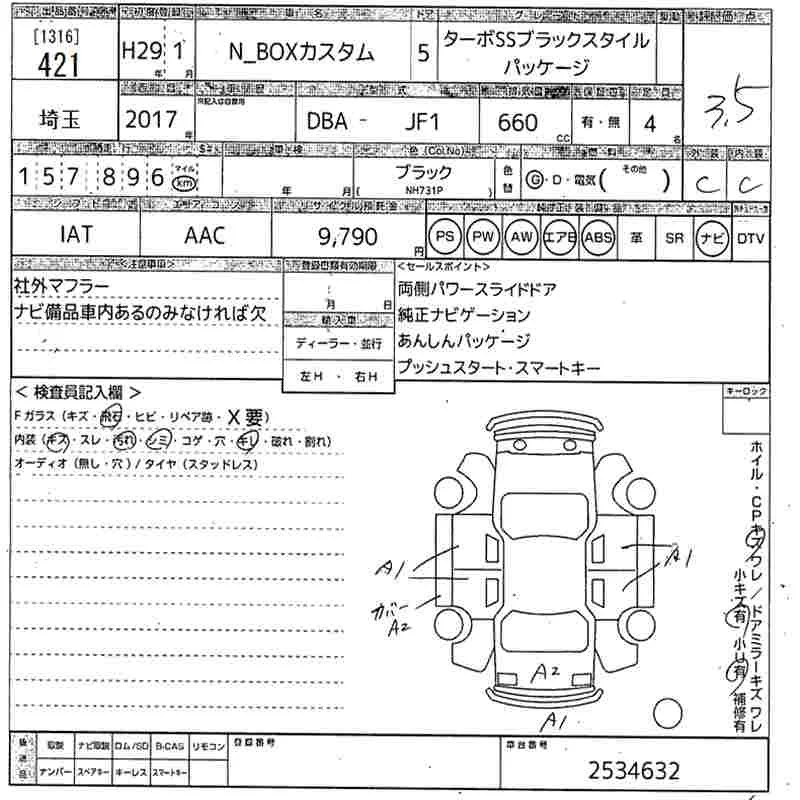 [1316]
421
H29 1
年 月
N_BOXカスタム
ドア
5
ターボSSブラックスタイル
パッケージ
3.5
埼玉
2017 年
DBA - JF1
660 cc
有・無
4 名
157,896 マイル km
年 月
色 (Col.No)
ブラック
NH731P
色替
G・D・電気( その他 )
C C
IAT
AAC
9,790 円
PS PW AW エアB ABS 革 SR ナビ DTV
<注意事項>
社外マフラー
ナビ備品車内あるのみなければ欠
登録書類有効期限
月 日
輸入車
ディーラー・並行
左H ・ 右H
<セールスポイント>
両側パワースライドドア
純正ナビゲーション
あんしんパッケージ
プッシュスタート・スマートキー
< 検査員記入欄 >
Fガラス (キズ・飛石・ヒビ・リペア跡・X要)
内装 (キズ・スレ・汚れ・シミ・コゲ・穴・キレ・破れ・割れ)
オーディオ (無し・穴) / タイヤ (スタッドレス)
キーロック
A1
カバー
A2
A1
A2
A1
ホイル・CPキズワレ/ドアミラーキズワレ
小キズ有 小U有 補修有
後送品
取説 ナビ取説 ロム/SD B-CAS リモコン
ナンバー スペアキー キーレス スマートキー
登録番号
車台番号
2534632